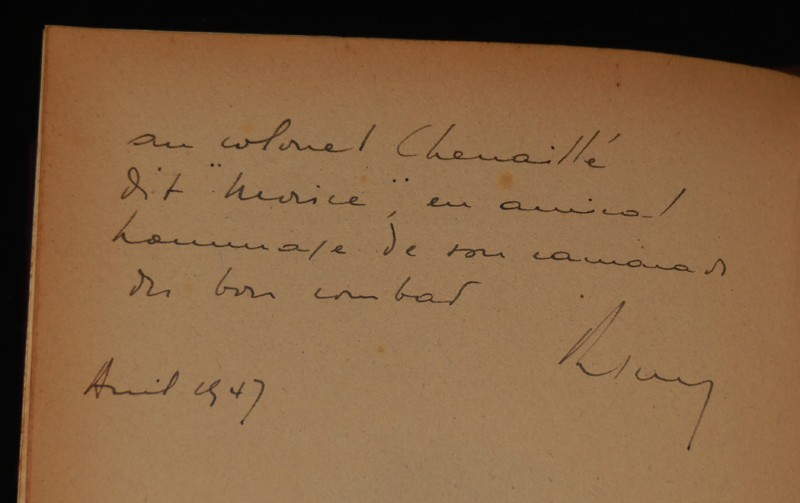 au colonel Chenaillé
dit "Morice", en amical
hommage de son camarade
du bon combat
Avril 1947